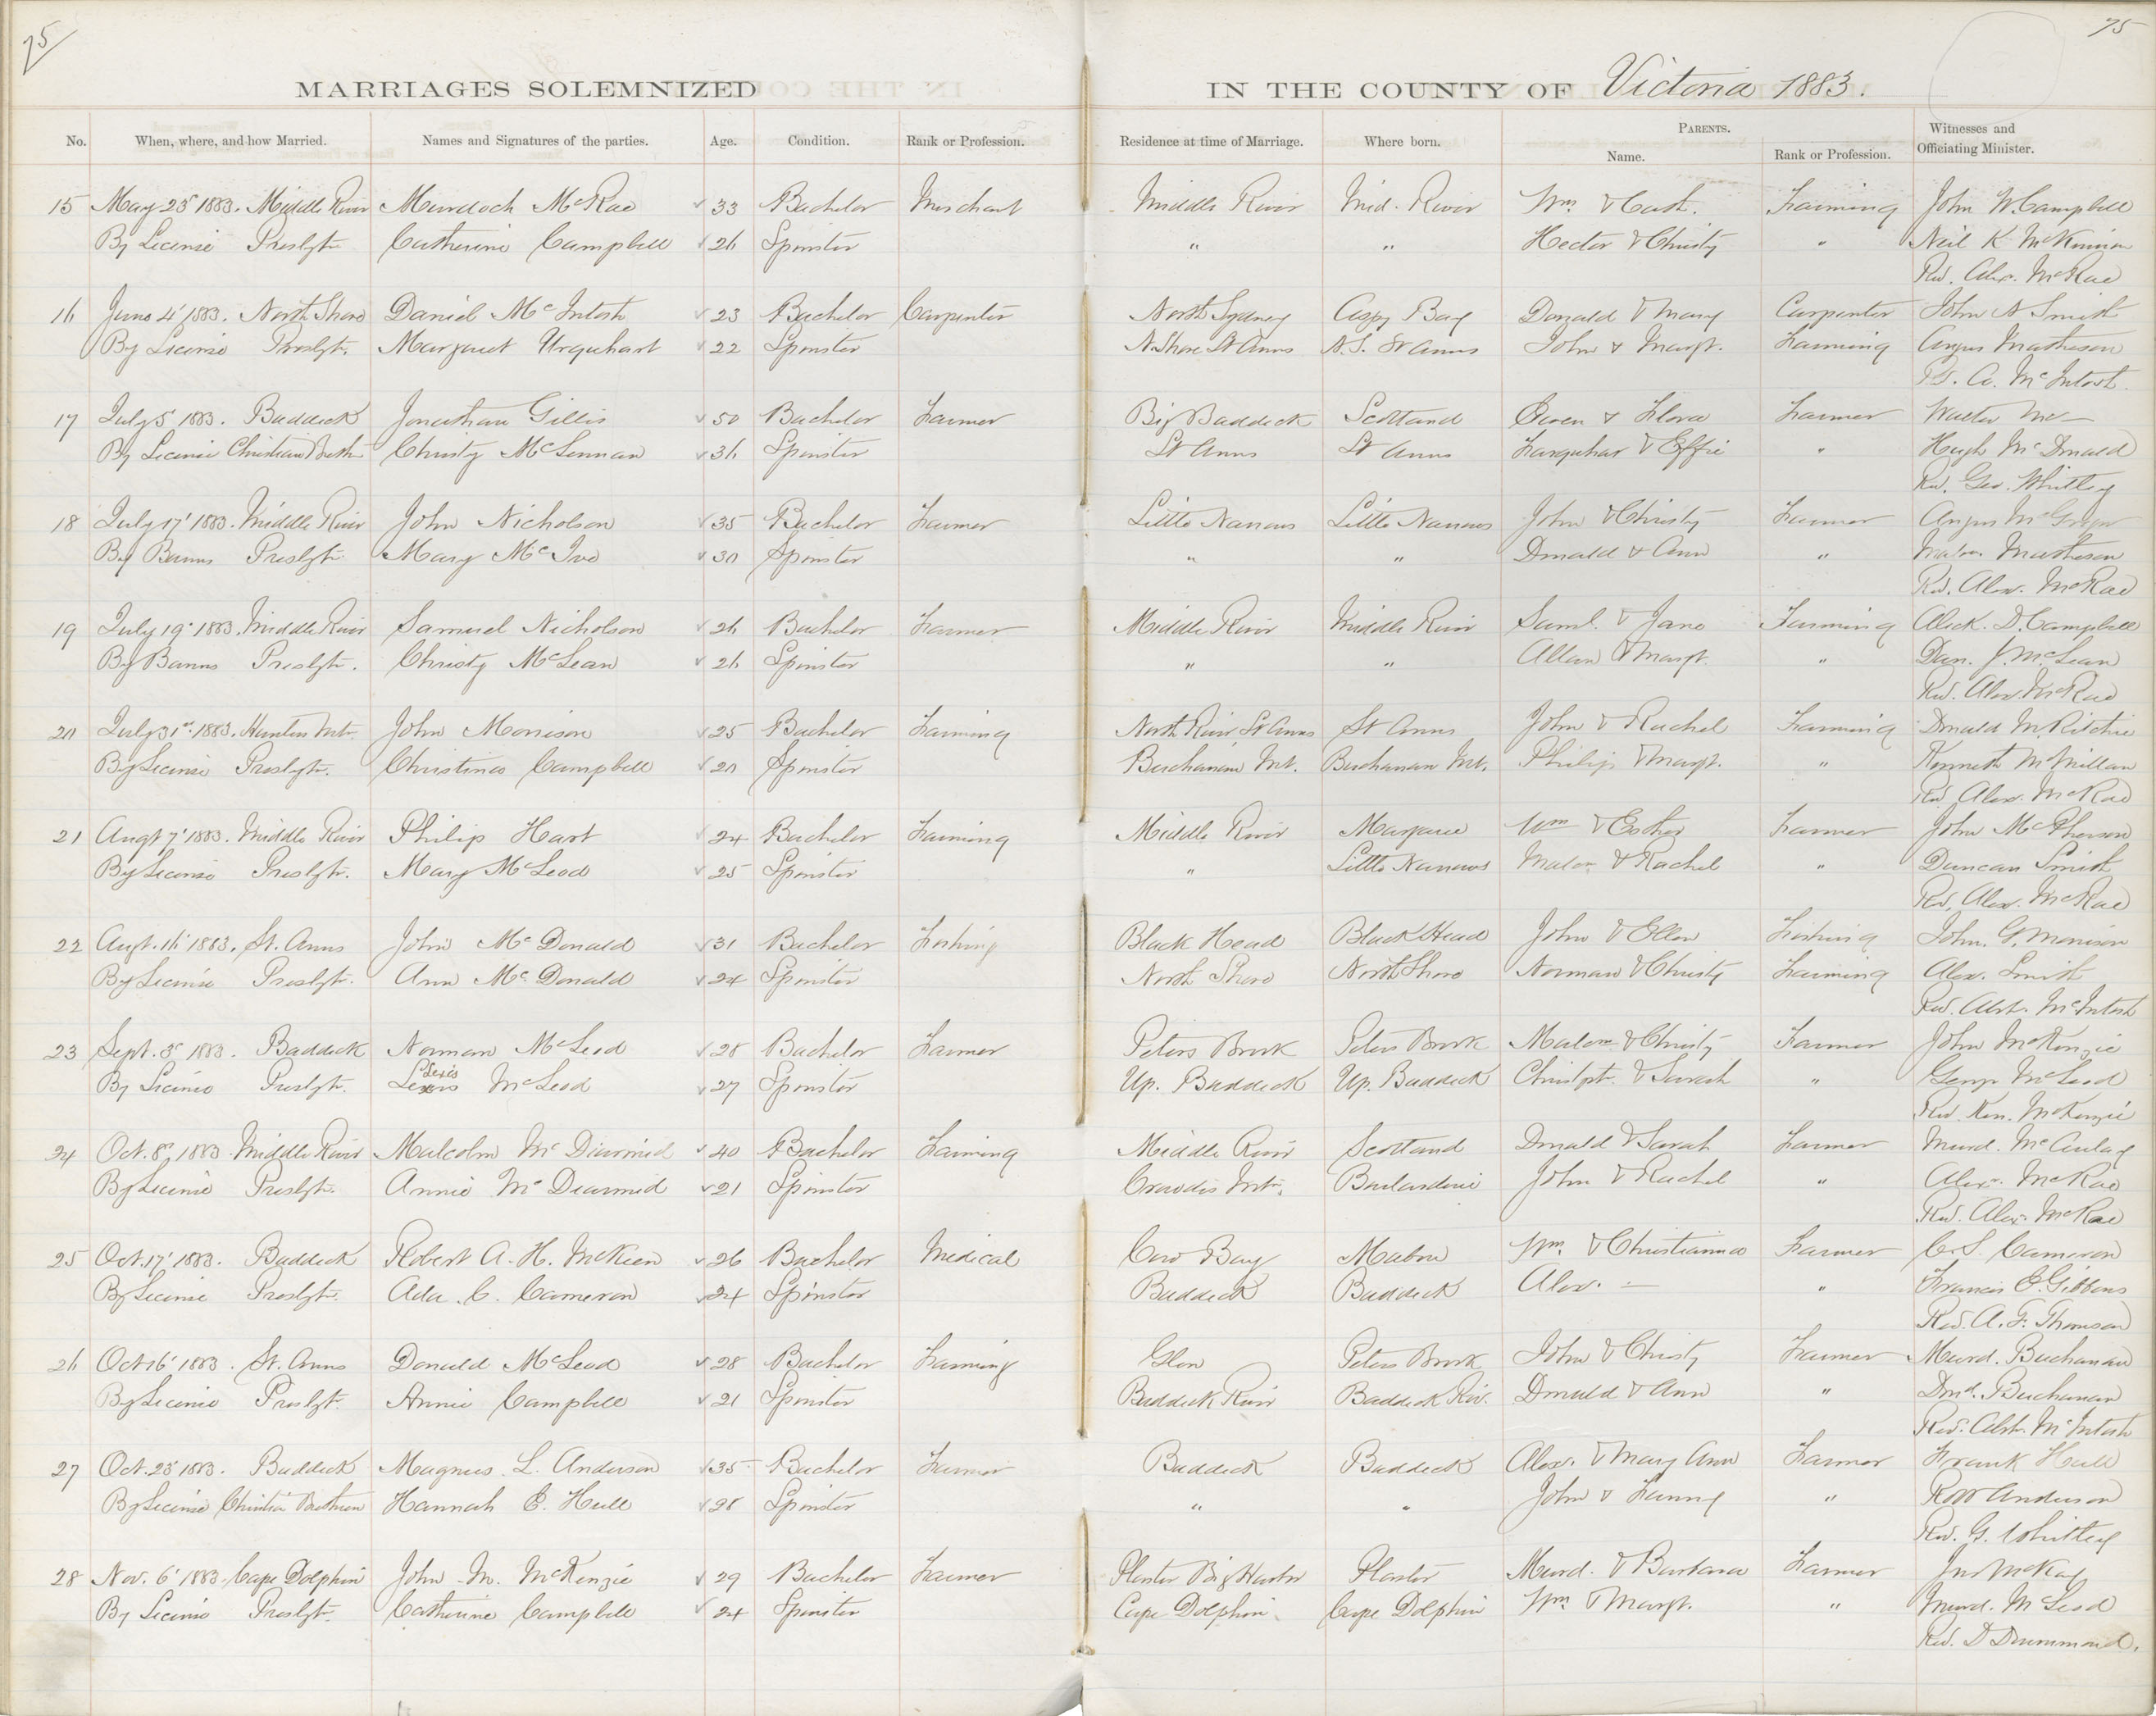 75
75
MARRIAGES SOLEMNIZED IN THE COUNTY OF Victoria 1883.
No. When, where, and how Married. Names and Signatures of the parties. Age. Condition. Rank or Profession. Residence at time of Marriage. Where born. PARENTS. Name. Rank or Profession. Witnesses and Officiating Minister.
15 May 23 1883. Middle River Murdoch McRae 33 Bachelor Merchant Middle River Mid. River Wm. & Cath. Farming John W. Campbell
By License Presbytn Catherine Campbell 26 Spinster " " Hector & Christy " Neil K McKinnon
Rev. Alex. McRae
16 June 4' 1883. North Shore Daniel McIntosh 23 Bachelor Carpenter North Sydney Aspy Bay Donald & Mary Carpenter John A Smith
By License Presbytn. Margaret Urquhart 22 Spinster N. Shore St Anns N.S. St Anns John & Margt. Farming Angus Matheson
A. McIntosh
17 July 5 1883. Baddeck Jonathan Gillis 50 Bachelor Farmer Big Baddeck Scotland Owen & Flora Farmer Walter Mc—
By License Christian Breth Christy McLennan 36 Spinster St Anns St Anns Farquhar & Effie " Hugh McDonald
Rev. Geo. Whitley
18 July 17' 1883. Middle River John Nicholson 35 Bachelor Farmer Little Narrows Little Narrows John & Christy Farmer Angus McGregor
By Banns Presbytn Mary McIvo 30 Spinster " " Donald & Ann " Malcm. Matheson
Rev. Alex. McRae
19 July 19' 1883. Middle River Samuel Nicholson 26 Bachelor Farmer Middle River Middle River Saml. & Jane Farming Alick. D. Campbell
By Banns Presbytn. Christy McLean 26 Spinster " " Allan & Margt. " Dan. J. McLean
Rev. Alex McRae
20 July 31st 1883. Hunters Mtn. John Morrison 25 Bachelor Farming North River St Anns St Anns John & Rachel Farming Donald McRitchie
By License Presbytn. Christina Campbell 20 Spinster Buchanan Mt. Buchanan Mt. Philip & Margt. " Kenneth McMillan
Rev Alex. McRae
21 Augt 7' 1883. Middle River Philip Hart 24 Bachelor Farming Middle River Margaree Wm & Esther Farmer John McPherson
By License Presbytn. Mary McLeod 25 Spinster " Little Narrows Malcm & Rachel " Duncan Smith
Rev. Alex. McRae
22 Augt. 16' 1883. St. Anns John McDonald 31 Bachelor Fishing Black Head Black Head John & Ellen Fishing John. G. Morrison
By License Presbytn. Ann McDonald 24 Spinster North Shore North Shore Norman & Christy Farming Alex. Smith
Rev. Abrh. McIntosh
23 Sept. 3' 1883. Baddeck Norman McLeod 28 Bachelor Farmer Peters Brook Peters Brook Malcm & Christy Farmer John McKenzie
By License Presbytn. Lexis Lexis McLeod 27 Spinster Up. Baddeck Up. Baddeck Christph. & Sarah " George McLeod
Rev Ken. McKenzie
24 Oct. 8' 1883 Middle River Malcolm McDiarmid 40 Bachelor Farming Middle River Scotland Donald & Sarah Farmer Murd. McAulay
By License Presbytn. Annie McDiarmid 21 Spinster Crowdis Mtn. Boularderie John & Rachel " Alex. McRae
Rev. Alex. McRae
25 Oct. 17' 1883. Baddeck Robert A. H. McKeen 26 Bachelor Medical Cow Bay Mabou Wm. & Christianna Farmer C. S. Cameron
By License Presbytn. Ada. C. Cameron 24 Spinster Baddeck Baddeck Alex. — " Francis E. Gibbons
Rev. A. F. Thomson
26 Oct 16' 1883. St. Anns Donald McLeod 28 Bachelor Farming Glen Peters Brook John & Christy Farmer Murd. Buchanan
By License Presbytn. Annie Campbell 21 Spinster Baddeck River Baddeck Riv. Donald & Ann " Dond. Buchanan
Rev. Abrh. McIntosh
27 Oct. 23' 1883. Baddeck Magnus L. Anderson 35 Bachelor Farmer Baddeck Baddeck Alex. & Mary Ann Farmer Frank Hull
By License Christian Brethren Hannah E. Hull 28 Spinster " " John & Fanny " Anderson
Rev. G. Whitley
28 Nov. 6' 1883. Cape Dolphin John M. McKenzie 29 Bachelor Farmer Plaster Big Harbr Plaster Murd. & Barbara Farmer Jno McKay
By License Presbytn. Catherine Campbell 24 Spinster Cape Dolphin. Cape Dolphin Wm & Margt. " Murd. McLeod
Rev. D Drummond.